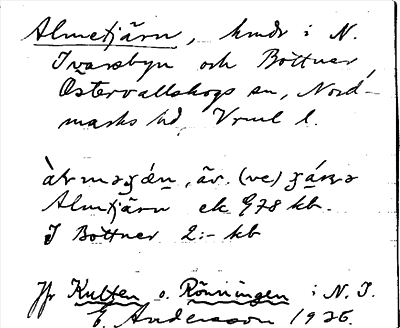 Almetjärn, hmdr i N.
Ivarsbyn och Bottner,
Östervallskogs sn, Nord-
marks hd, Vrml l.
äv. (ve)
Almtjärn ek 978 kb.
I Bottner 2:- kb
Jfr Kulten o. Rönningen i N. I.
E. Andersson 1926.